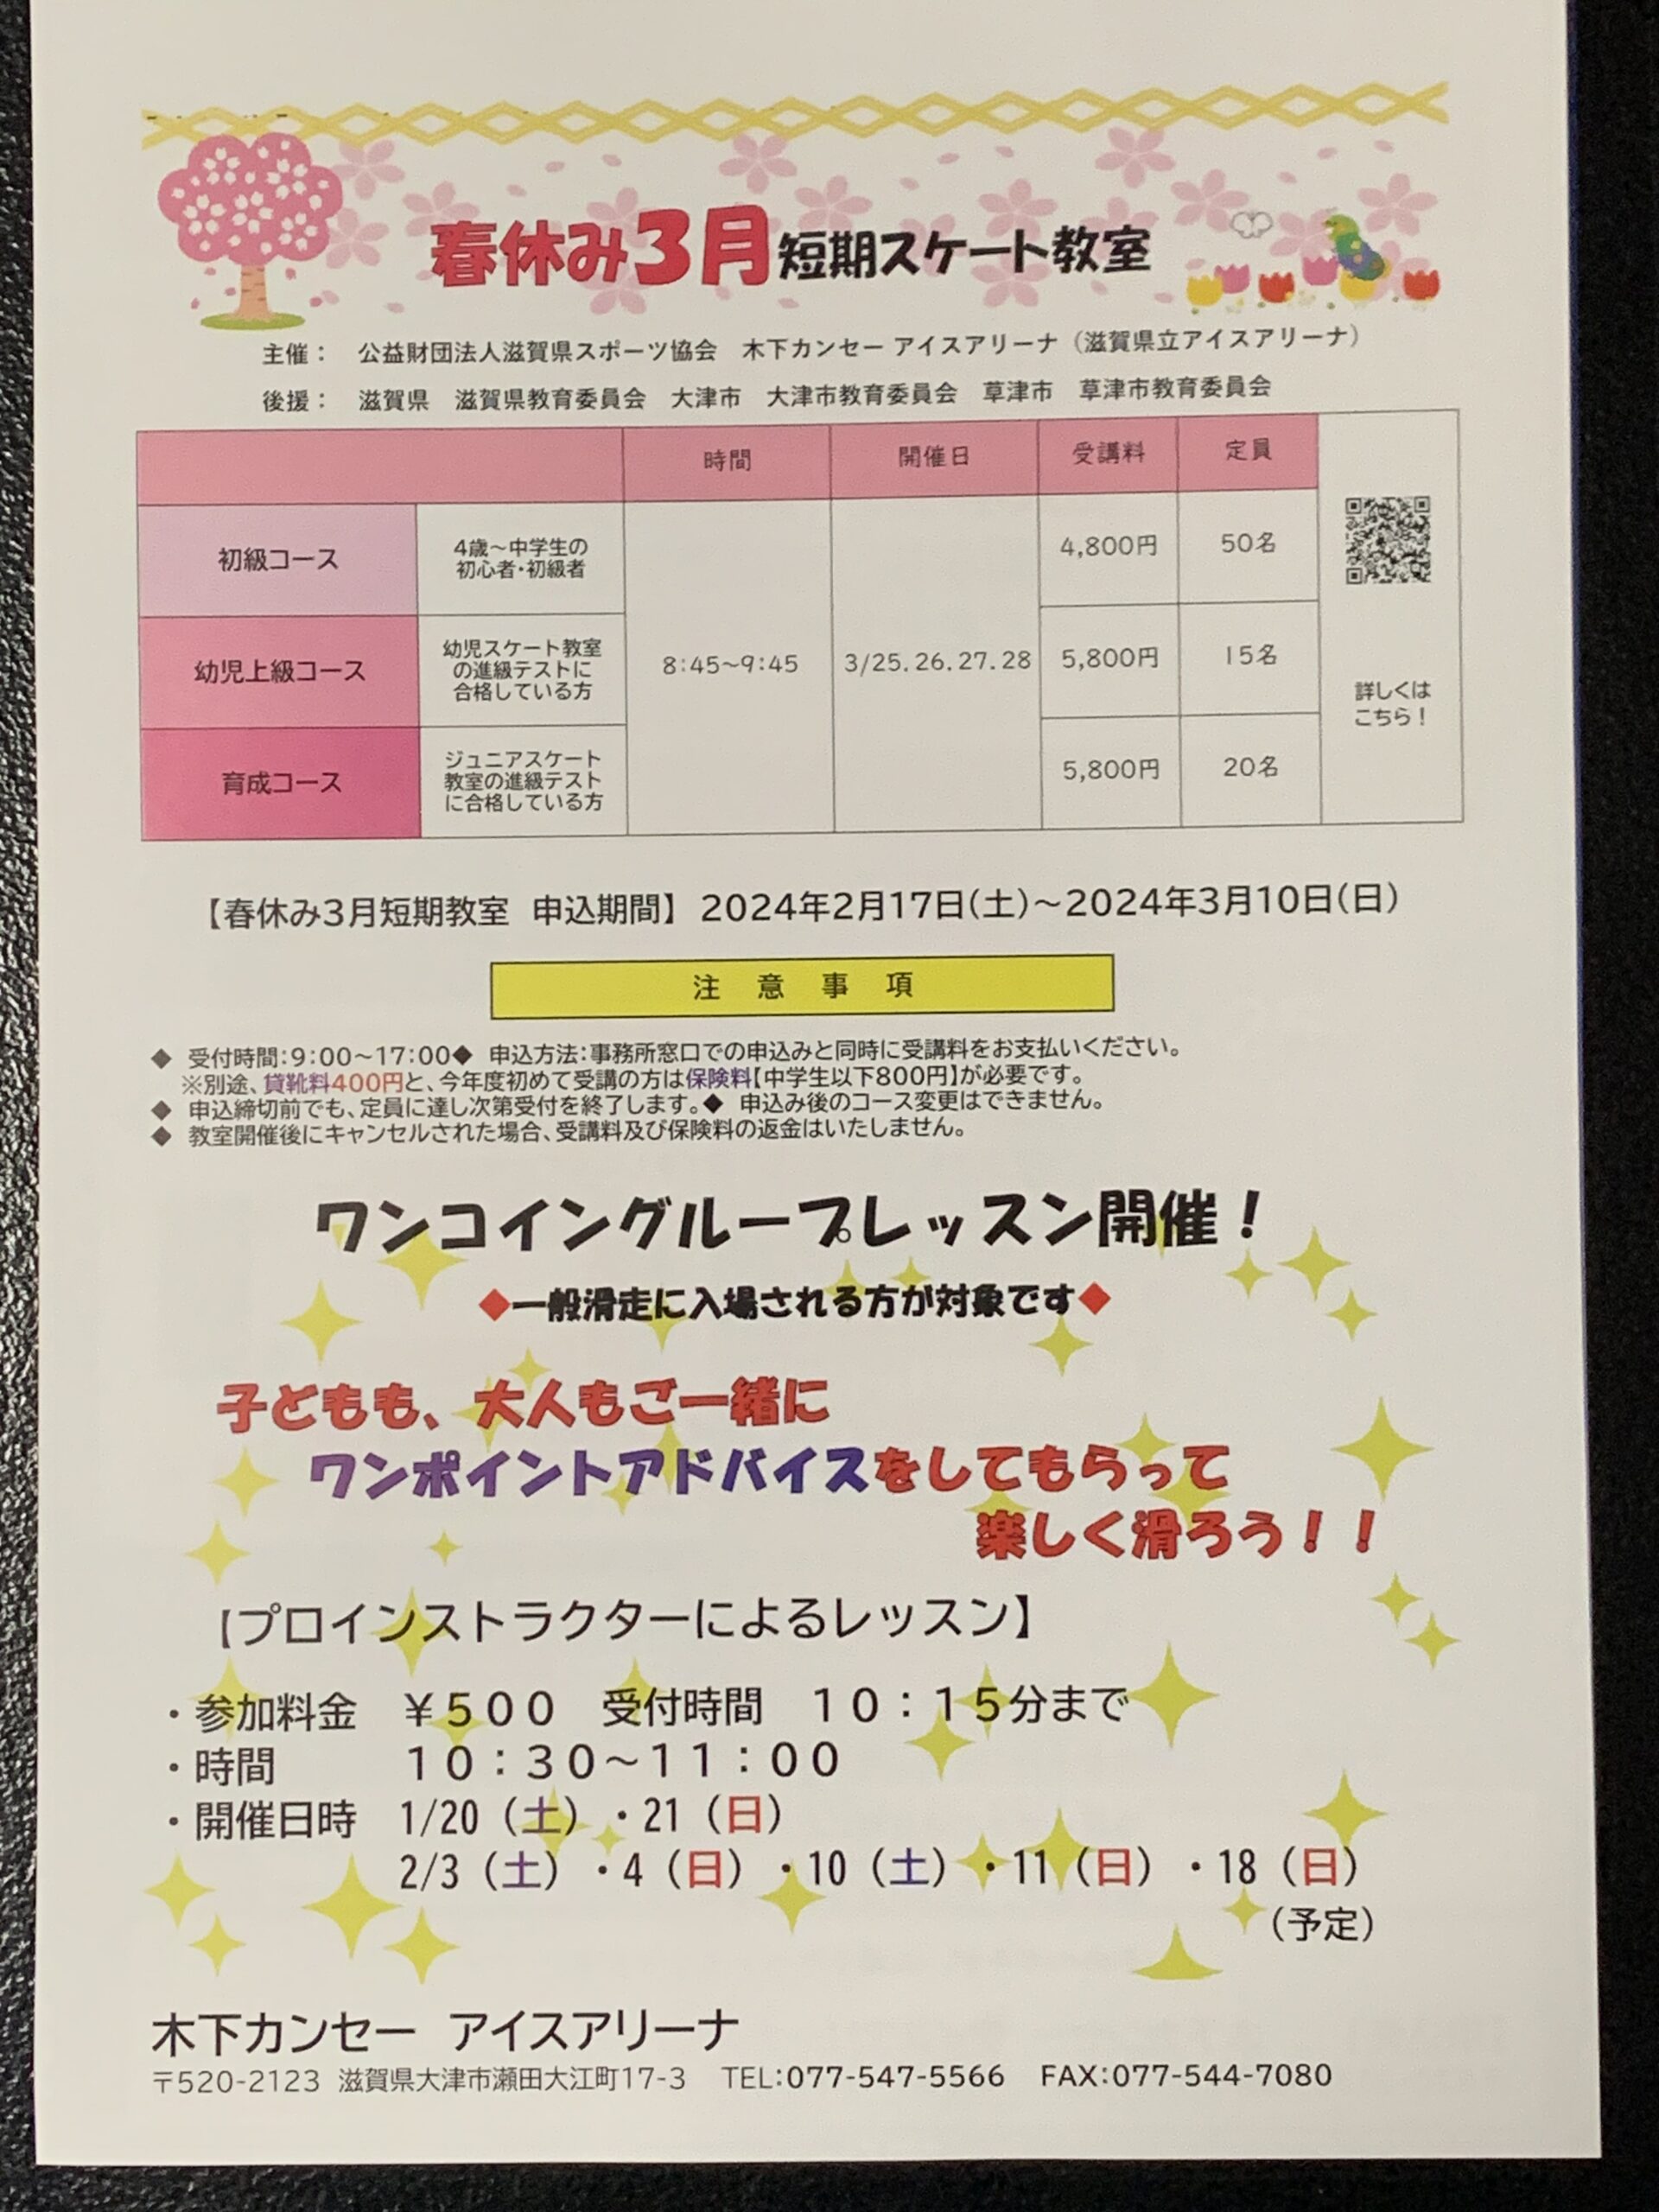 春休み3月短期スケート教室
主催： 公益財団法人滋賀県スポーツ協会 木下カンセー アイスアリーナ（滋賀県立アイスアリーナ）
後援： 滋賀県 滋賀県教育委員会 大津市 大津市教育委員会 草津市 草津市教育委員会
時間 開催日 受講料 定員
初級コース
4歳～中学生の
初心者・初級者
4,800円 50名
幼児上級コース
幼児スケート教室
の進級テストに
合格している方
8:45～9:45 3/25.26.27.28 5,800円 15名
育成コース
ジュニアスケート
教室の進級テスト
に合格している方
5,800円 20名
詳しくは
こちら！
【春休み3月短期教室 申込期間】 2024年2月17日(土)～2024年3月10日(日)
注 意 事 項
◆ 受付時間：9:00～17:00◆ 申込方法：事務所窓口での申込みと同時に受講料をお支払いください。
※別途、貸靴料400円と、今年度初めて受講の方は保険料【中学生以下800円】が必要です。
◆ 申込締切前でも、定員に達し次第受付を終了します。◆ 申込み後のコース変更はできません。
◆ 教室開催後にキャンセルされた場合、受講料及び保険料の返金はいたしません。
ワンコイングループレッスン開催！
◆一般滑走に入場される方が対象です◆
子どもも、大人もご一緒に
ワンポイントアドバイスをしてもらって
楽しく滑ろう！！
【プロインストラクターによるレッスン】
・参加料金 ￥５００ 受付時間 １０：１５分まで
・時間 １０：３０～１１：００
・開催日時 1/20（土）・21（日）
2/3（土）・4（日）・10（土）・11（日）・18（日）
（予定）
木下カンセー アイスアリーナ
〒520-2123 滋賀県大津市瀬田大江町17-3 TEL：077-547-5566 FAX：077-544-7080